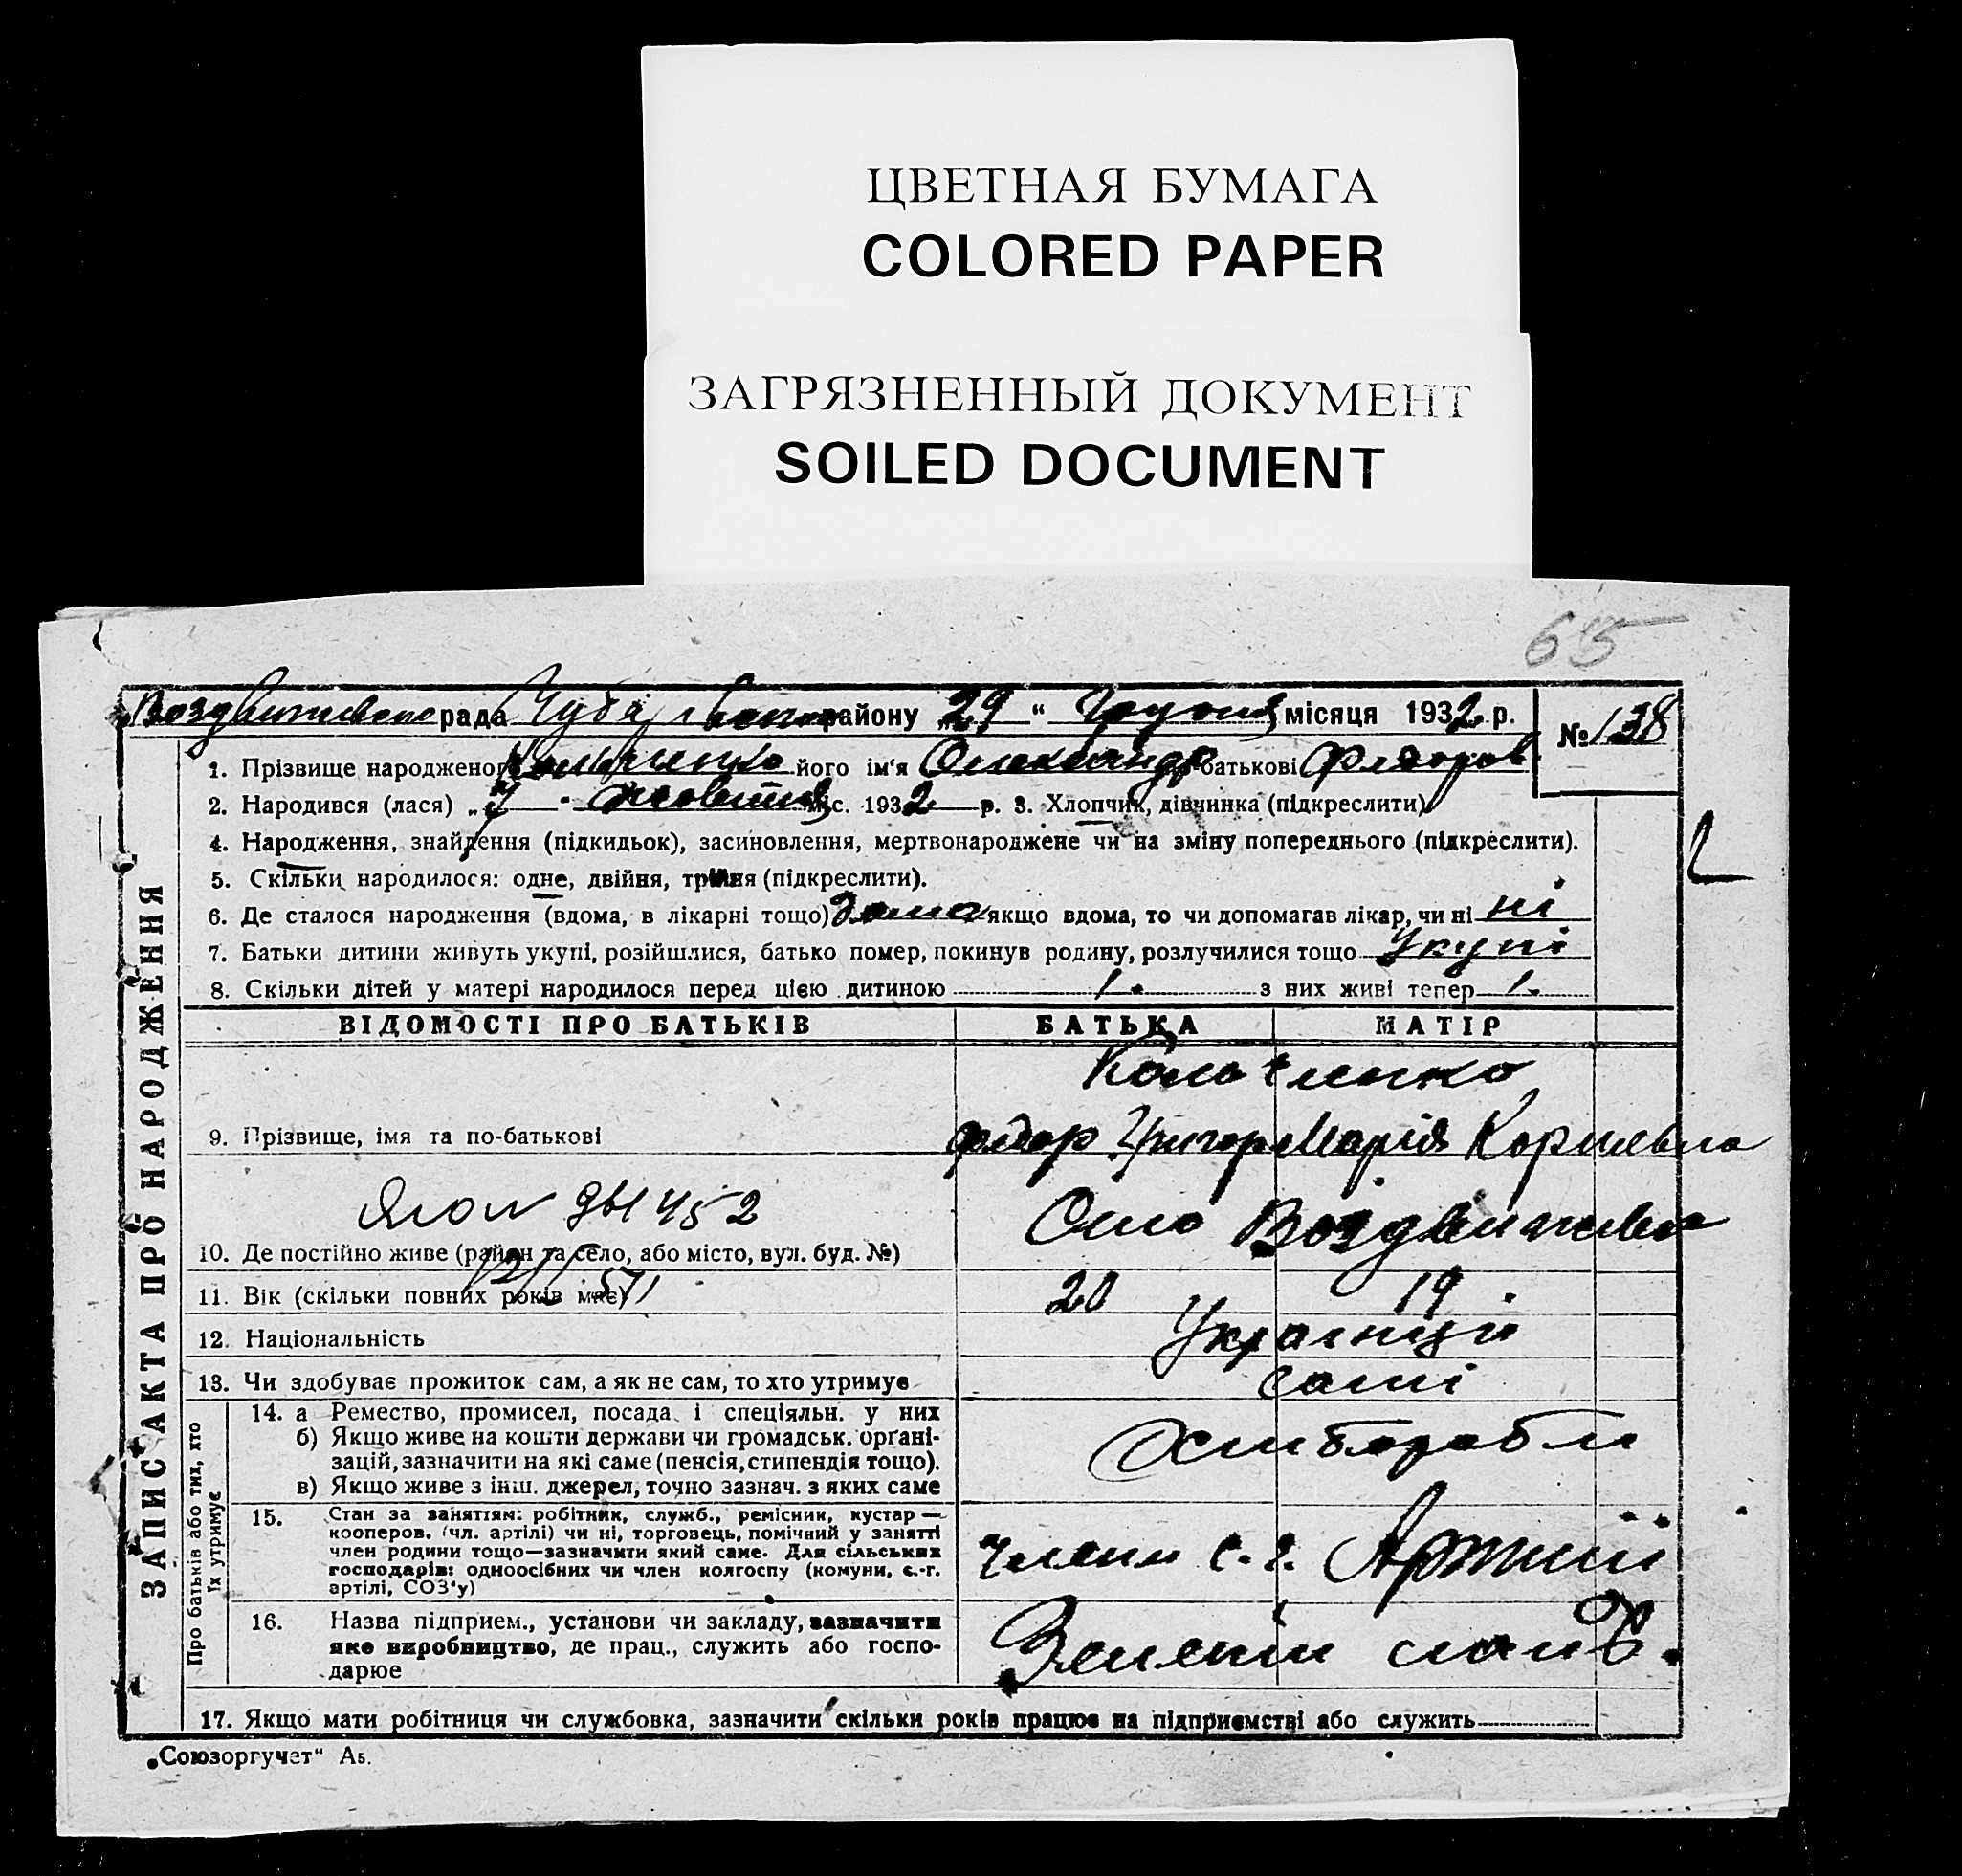 ЦВЕТНАЯ БУМАГА
COLORED PAPER
ЗАГРЯЗНЕННЫЙ ДОКУМЕНТ
SOILED DOCUMENT
65
рада району „29“ Грудня місяця 1932 р. № 138
1. Прізвище народженого його ім'я Олександр по батькові Федоров
2. Народився (лася) „7 " жовтня міс. 1932 р. 3. Хлопчик, дівчинка (підкреслити)
4. Народження, знайдення (підкидьок), засиновлення, мертвонароджене чи на зміну попереднього (підкреслити).
5. Скільки народилося: одне, двійня, трійня (підкреслити).
6. Де сталося народження (вдома, в лікарні тощо) дома якщо вдома, то чи допомагав лікар, чи ні ні
7. Батьки дитини живуть укупі, розійшлися, батько помер, покинув родину, розлучилися тощо Укупі
8. Скільки дітей у матері народилося перед цією дитиною 1. з них живі тепер 1.
ЗАПИС АКТА ПРО НАРОДЖЕННЯ
ВІДОМОСТІ ПРО БАТЬКІВ БАТЬКА МАТІР
Кольченко
9. Прізвище, імя та по-батькові Федор Григор Марія Корнієвна
452
10. Де постійно живе (район та село, або місто, вул. буд. №) Село Воздвиживка
11. Вік (скільки повних років має) 20 19
12. Національність Українці
13. Чи здобуває прожиток сам, а як не сам, то хто утримує самі
Про батьків або тих, хто їх утримує
14. а Ремество, промисел, посада і спеціяльн. у них
б) Якщо живе на кошти держави чи громадськ. орґані-
зацій, зазначити на які саме (пенсія, стипендія тощо). Хлібороби
в) Якщо живе з інш. джерел, точно зазнач. з яких саме
15. Стан за заняттям: робітник, служб., ремісник, кустар —
кооперов. (чл. артілі) чи ні, торговець, помічний у занятті
член родини тощо—зазначити який саме. Для сільських
господарів: одноосібних чи член колгоспу (комуни, с.-г.
артілі, СОЗ'у) Члени с. г. Артілі
16. Назва підприєм., установи чи закладу, зазначити
яке виробництво, де прац., служить або госпо-
дарює
17. Якщо мати робітниця чи службовка, зазначити скільки років працює на підприємстві або служить
„Союзоргучет“ Аь.